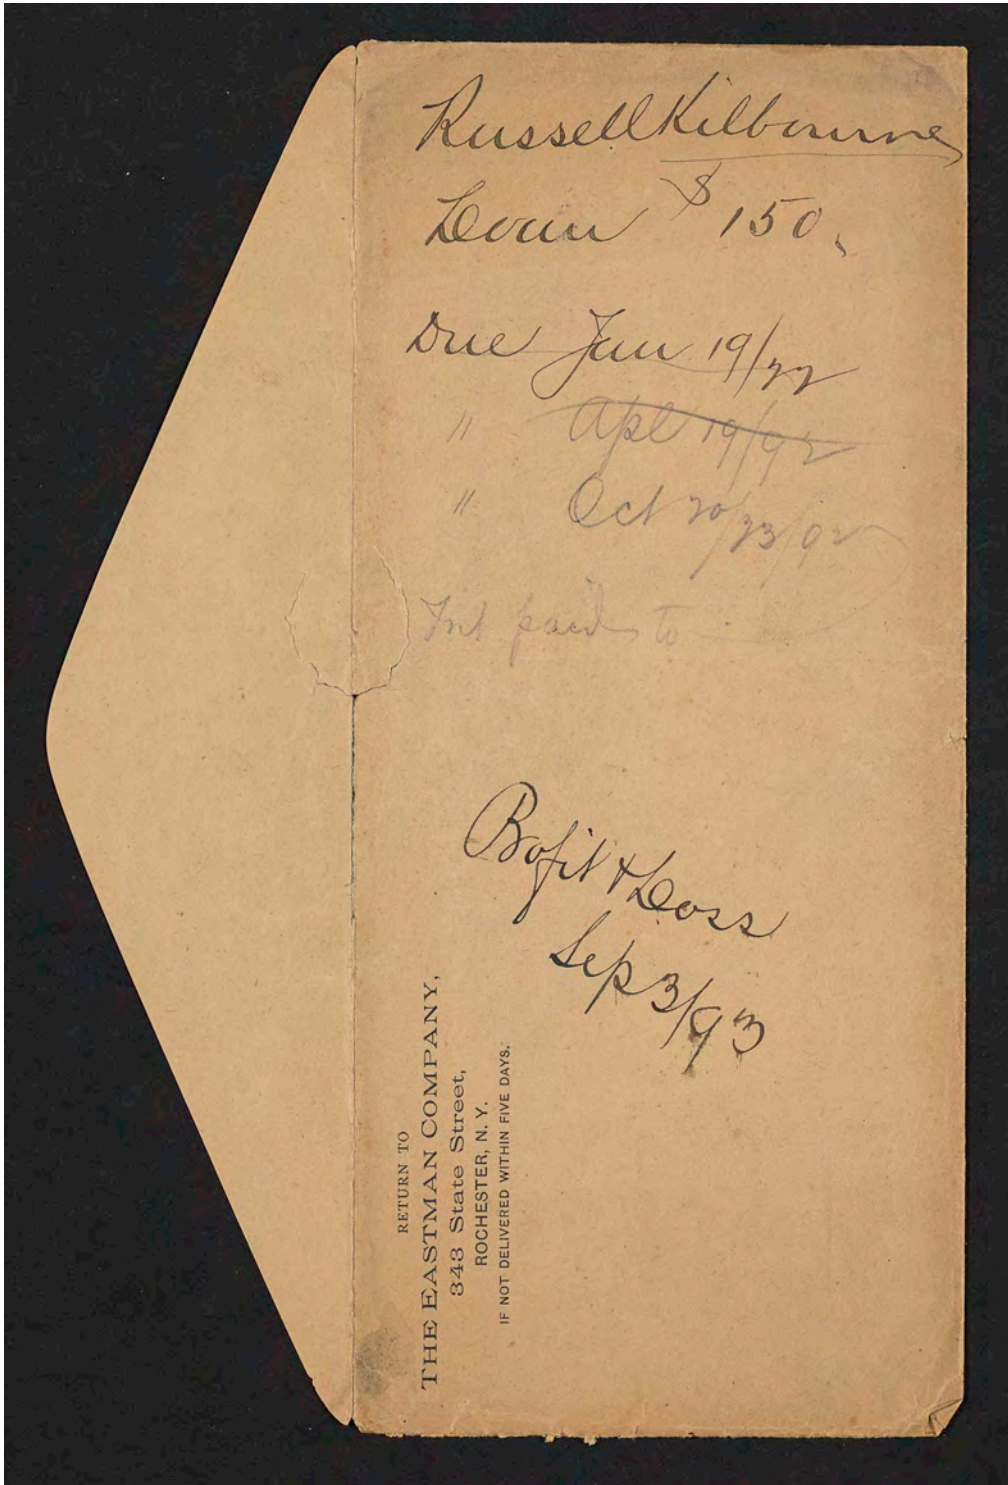 Russell Kilbourne
Loan $150.
Due Jan 19/92
" Apl 19/92
" Oct 20/23/92
Int paid to
Profit & Loss
Sep 3/93
RETURN TO
THE EASTMAN COMPANY,
343 State Street,
ROCHESTER, N. Y.
IF NOT DELIVERED WITHIN FIVE DAYS.